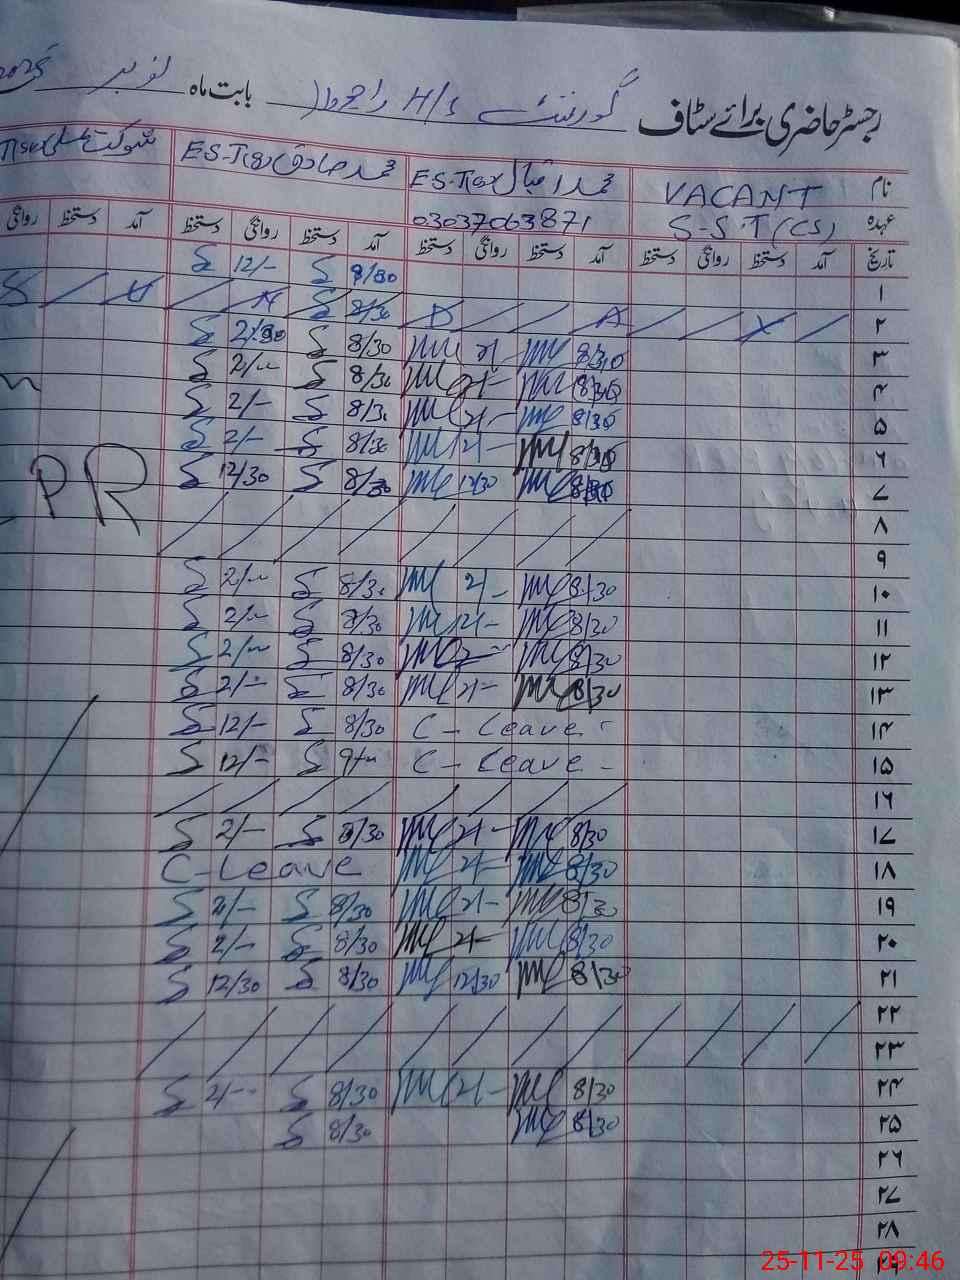 رجسٹر حاضری برائے سٹاف گورنمنٹ H/S بابت ماہ نومبر 2025
نام VACANT محمد اقبال E.S.T محمد صادق E.S.T شوکت علی
عہدہ S-S.T (CS) 03037063871
تاریخ آمد دستخط روانگی دستخط آمد دستخط روانگی دستخط آمد دستخط روانگی دستخط آمد دستخط روانگی
۱ 8/30 12/-
۲ X A D 8/30
۳ 8/30 2/- 8/30 2/30
۴ 8/30 2/- 8/30 2/-
۵ 8/30 2/- 8/30 2/-
۶ 8/30 2/- 8/30 2/-
۷ 8/30 12/30 8/30 12/30 PR
۸
۹
۱۰ 8/30 2/- 8/30 2/-
۱۱ 8/30 2/- 8/30 2/-
۱۲ 8/30 2/- 8/30 2/-
۱۳ 8/30 2/- 8/30 2/-
۱۴ C-Leave 8/30 12/-
۱۵ C-Leave 9/- 12/-
۱۶
۱۷ 8/30 2/- 8/30 2/-
۱۸ 8/30 2/- C-Leave
۱۹ 8/30 2/- 8/30 2/-
۲۰ 8/30 2/- 8/30 2/-
۲۱ 8/30 12/30 8/30 12/30
۲۲
۲۳
۲۴ 8/30 2/- 8/30 2/-
۲۵ 8/30 8/30
۲۶
۲۷
۲۸
۲۹
25-11-25 09:46